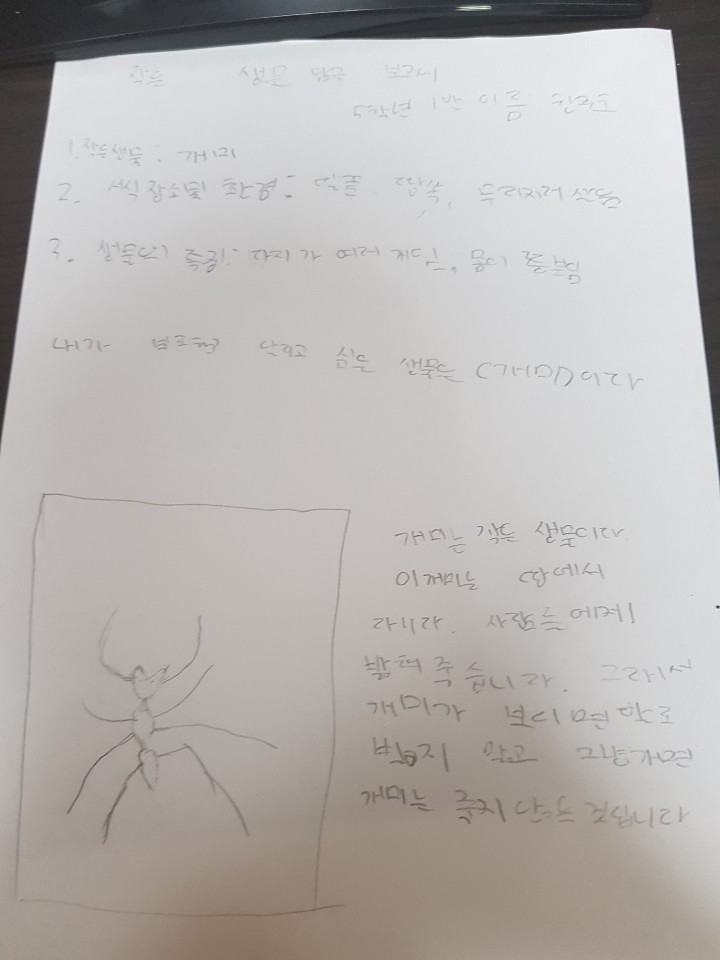 작은 생물 탐구 보고서
5학년 1반 이름
1. 작은생물 : 개미
2. 서식장소및 환경 : 땅쪽, 무리지어 산다
3. 생물의 특징 : 다리가 여러 개다, 몸이
내가 보호해 주고 싶은 생물은 (개미)이다
개미는 작은 생물이다
이개미는 땅에서
사람들에게
밟혀 죽습니다. 그래서
개미가 보이면
밟지 않고 그냥가면
개미는 죽지 않을 것입니다